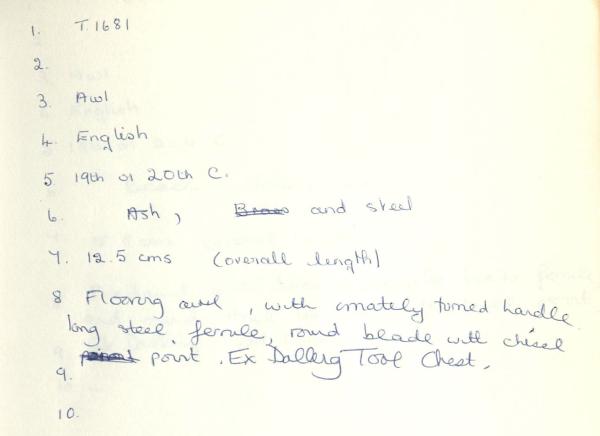 1. T.1681
2.
3. Awl
4. English
5. 19th or 20th C.
6. Ash, Brass and steel
7. 12.5 cms (overall length)
8 Flooring awl, with ornately turned handle
long steel, ferrule, round blade with chisel
point point. Ex Dalling Tool Chest.
9.
10.